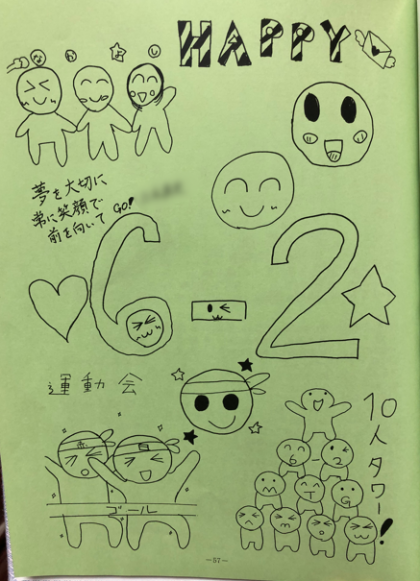 HAPPY
夢を大切に
常に笑顔で
前を向いて GO!
6-2
運動会
10人タワー!
ゴール
-57-